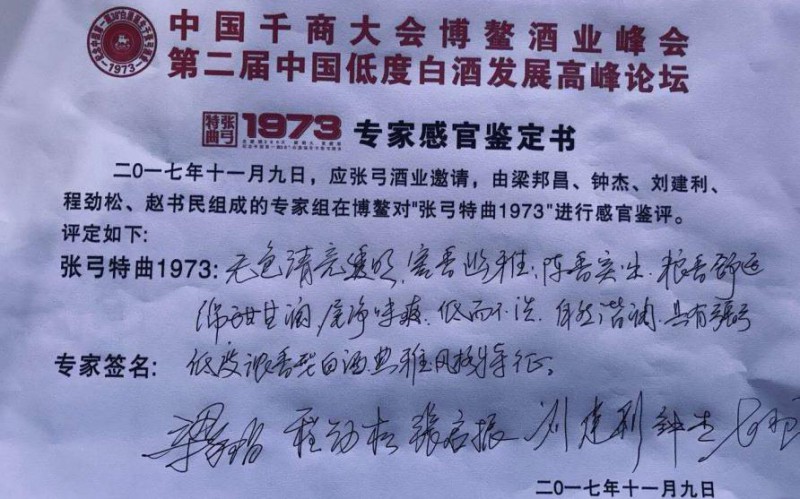 中国千商大会博鳌酒业峰会
第二届中国低度白酒发展高峰论坛
1973
张弓特曲 1973 专家感官鉴定书
二〇一七年十一月九日，应张弓酒业邀请，由梁邦昌、钟杰、刘建利、
程劲松、赵书民组成的专家组在博鳌对"张弓特曲1973"进行感官鉴评。
评定如下：
张弓特曲1973: 无色清亮透明、窖香幽雅、陈香突出、粮香舒适
绵甜甘润、尾净味爽、低而不淡、自然谐调、具有张弓
专家签名: 低度浓香型白酒典雅风格特征。
梁邦昌 程劲松 张启振 刘建利 钟杰
二〇一七年十一月九日